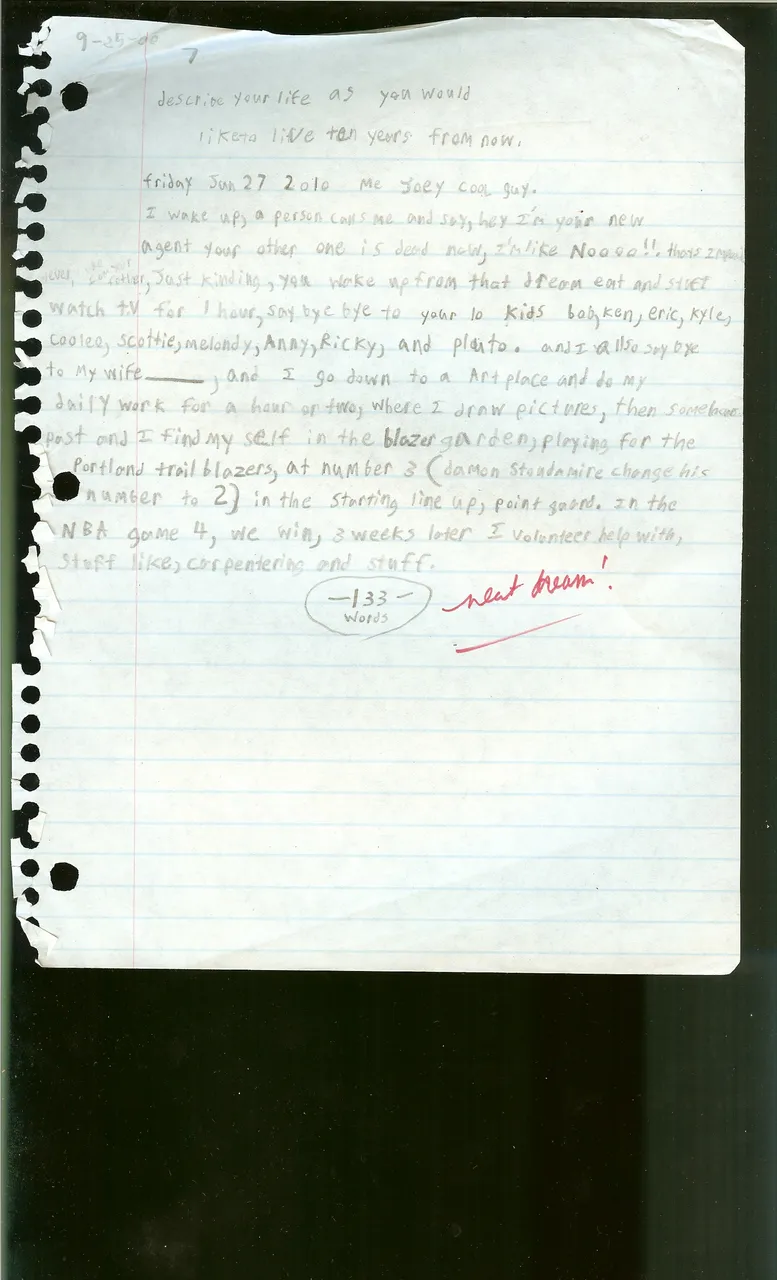 9-25-00
7
describe your life as you would
like to live ten years from now.
friday Jun 27 2010 Me Joey cool guy.
I wake up, a person calls me and say, hey I'm your new
agent your other one is dead now, I'm like Noooo!! thats
Just kinding, you wake up from that dream eat and stuff
watch t.V for 1 hour, say bye bye to your 10 kids bob, ken, eric, kyle,
Cooleo, Scottie, melondy, Anny, Ricky, and pluto. and I allso say bye
to my wife____, and I go down to a Art place and do my
daily work for a hour or two, where I draw pictures, then some hours
past and I find my self in the blazer garden, playing for the
Portland trail blazers, at number 3 (damon Stoudamire change his
number to 2) in the starting line up, point guard. In the
NBA game 4, we win, 3 weeks later I volunteer help with,
Stuff like, carpentering and stuff.
-133-
words
neat dream!